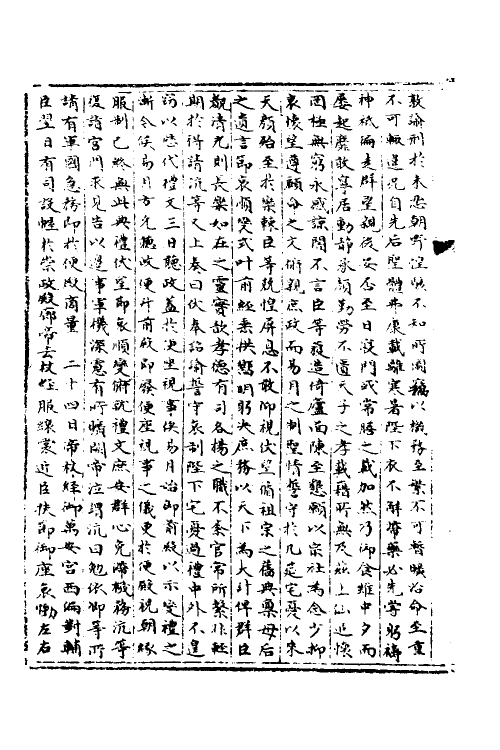 敦諭刑於未悉朝野惶駭不知所謂竊以機務至繁不可暫曠治命至重
不可輒違况自先后聖體弗康載離寒暑陛下衣不解帶藥必先嘗躬禱
神祇徧走群望親後安否至日寢門或常膳之咸加然乃御食雖中夕而
屢起靡敢寧居動静承顔勤勞不匱天子之孝載籍所無及茲上仙追懷
罔極無窮永感諒闇不言臣等發造倚廬面陳至懇願以宗社為念少抑
哀懷望遵顧命之文俯親庶政而易月之制聖情誓守於几筵宅憂以來
天顔殆至於欒棘臣等兢惶屏息不敢仰視伏望循祖宗之舊典稟母后
之遺言即衰順變式叶前經垂拱嚮明躬决庶務以天下為大計俾群臣
覩清光則長樂如在之靈實歆孝德有司各揚之職不紊官常所繫非輕
期於得請沆等又上奏曰伏奉詔諭誓守哀制陛下宅憂過禮中外不遑
竊以歴代禮文三日聽政蓋於便坐視事俟易月詔御前殿以示變禮之
漸今俟易月方允聽政便行前殿即發便座視事之儀更於便殿視朝緣
服制已終無此典禮伏望即哀順變俯就禮文庶安群心免曠機務沆等
復詣宮門求見告以邊事軍機深慮有所曠闕帝泣謂沆曰勉依卿等所
請有軍國急務即於便殿商量　二十四日帝杖絰御萬安宮西偏對輔
臣翌日有司設幄於崇政殿御帝去杖絰服縗裳近臣扶即御座哀慟左右